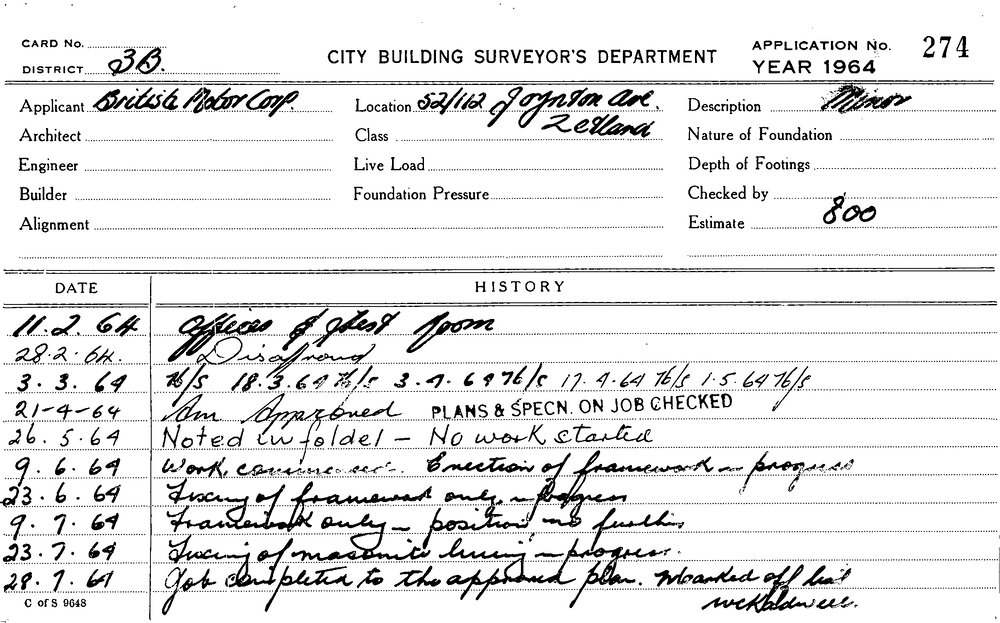 CARD No.
DISTRICT 3B.
CITY BUILDING SURVEYOR'S DEPARTMENT
APPLICATION No. 274
YEAR 1964
Applicant British Motor Corp.
Architect
Engineer
Builder
Alignment
Location 52/112 Joynton Ave.
Zetland
Class
Live Load
Foundation Pressure
Description Minor
Nature of Foundation
Depth of Footings
Checked by
Estimate 800
DATE HISTORY
11.2.64 Offices & Test Room
28.2.64. Disapproved
3.3.64 N/S 18.3.64 N/S 3.4.64 N/S 17.4.64 N/S 1.5.64 N/S
21-4-64 Am Approved PLANS & SPECN. ON JOB CHECKED
26.5.64 Noted in folder - No work started
9.6.64 Work commenced. Erection of framework in progress
23.6.64 Fixing of framework only in progress
9.7.64 Framework only - position no further
23.7.64 Fixing of masonite lining in progress.
28.7.64 Job completed to the approved plan. Marked off list
C of S 9648